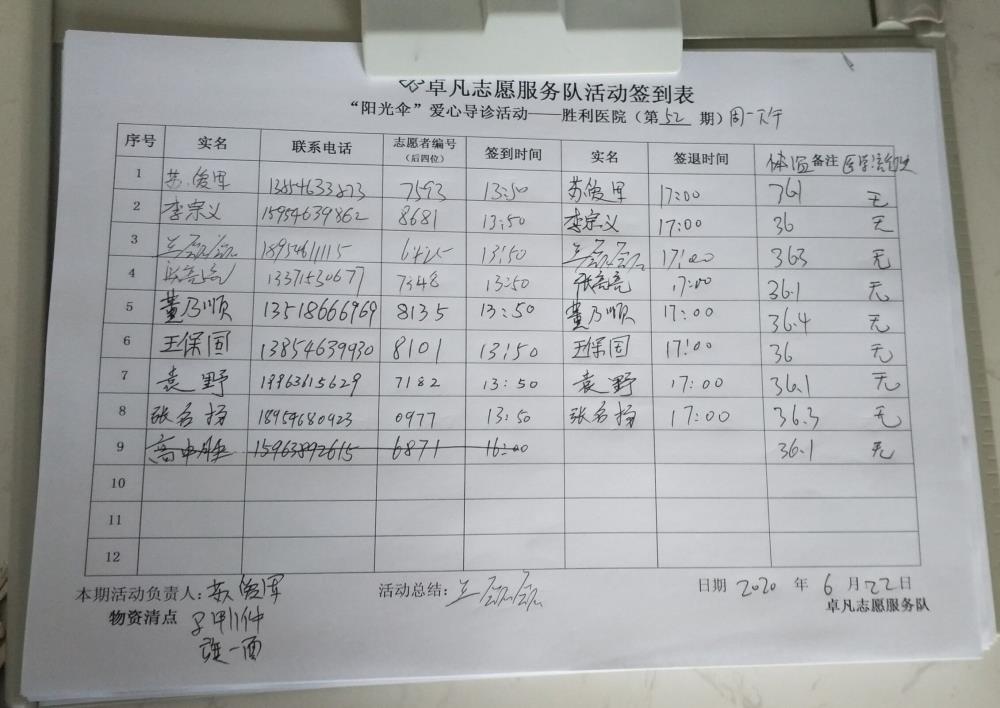 卓凡志愿服务队活动签到表
“阳光伞”爱心导诊活动——胜利医院（第 52 期）周一下午
序号 实名 联系电话 志愿者编号（后四位） 签到时间 实名 签退时间 体温 备注
1 苏俊军 13854633823 7593 13:50 苏俊军 17:00 36.1 无
2 李宗义 15954639862 8681 13:50 李宗义 17:00 36 无
3 18954611115 13:50 17:00 363 无
4 张亮亮 13371530677 7348 13:50 张亮亮 17:00 36.1 无
5 董乃顺 13518666969 8135 13:50 董乃顺 17:00 36.4 无
6 王保国 13854639930 8101 13:50 王保国 17:00 36 无
7 袁野 7182 13:50 袁野 17:00 36.1 无
8 张名扬 18954680923 0977 13:50 张名扬 17:00 36.3 无
9 15963892615 6871 16:00 36.1 无
10
11
12
本期活动负责人：苏俊军 活动总结： 日期 2020 年 6 月 22 日
物资清点 卓凡志愿服务队
旗一面